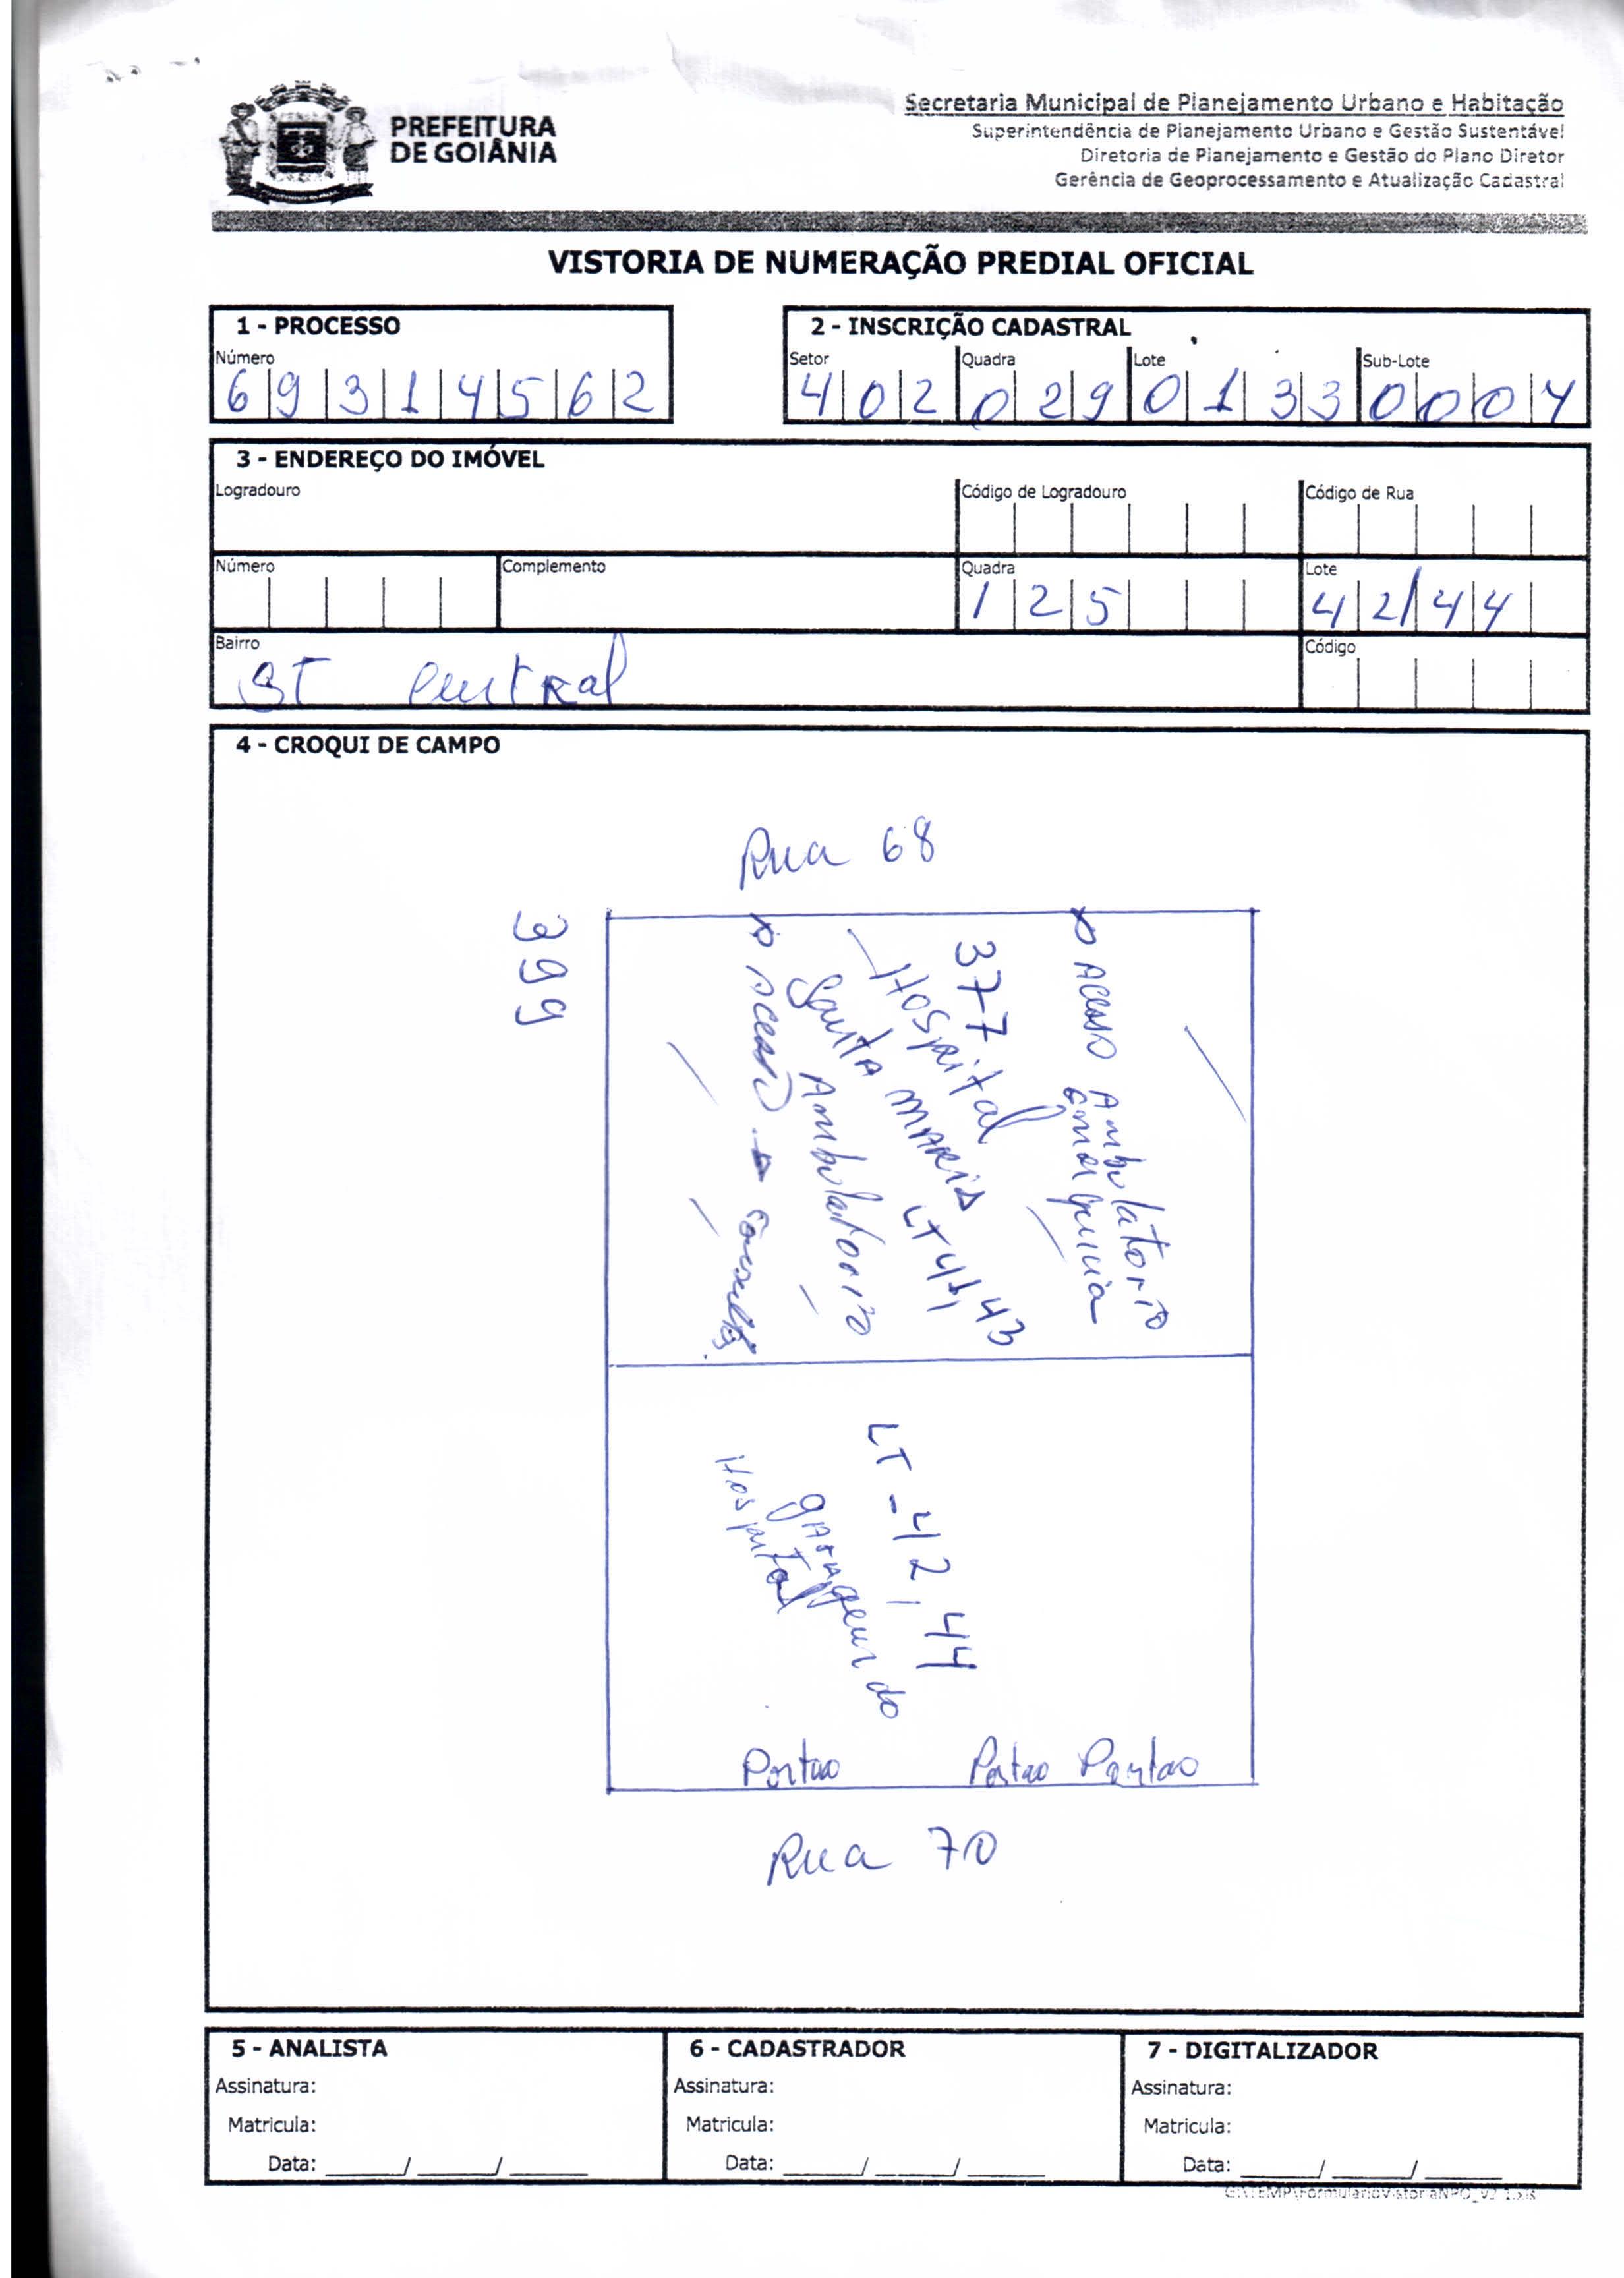 PREFEITURA
DE GOIÂNIA
Secretaria Municipal de Planejamento Urbano e Habitação
Superintendência de Planejamento Urbano e Gestão Sustentável
Diretoria de Planejamento e Gestão do Plano Diretor
Gerência de Geoprocessamento e Atualização Cadastral
VISTORIA DE NUMERAÇÃO PREDIAL OFICIAL
1 - PROCESSO
Número
69314562
2 - INSCRIÇÃO CADASTRAL
Setor Quadra Lote Sub-Lote
402 029 0133 0004
3 - ENDEREÇO DO IMÓVEL
Logradouro Código de Logradouro Código de Rua
Número Complemento Quadra Lote
125 42/44
Bairro Código
ST Central
4 - CROQUI DE CAMPO
Rua 68
399
Acesso Ambulatorio
emergencia
377
Hospital
Santa Maria
LT 41, 43
Ambulatorio
acesso
LT - 42, 44
garagem do
Hospital
Portao Portao Portao
Rua 70
5 - ANALISTA
Assinatura:
Matricula:
Data: ____/____/____
6 - CADASTRADOR
Assinatura:
Matricula:
Data: ____/____/____
7 - DIGITALIZADOR
Assinatura:
Matricula:
Data: ____/____/____